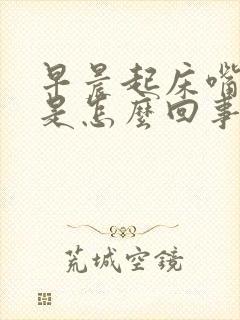 早晨起床嘴
是怎麼回事
荒城空鏡